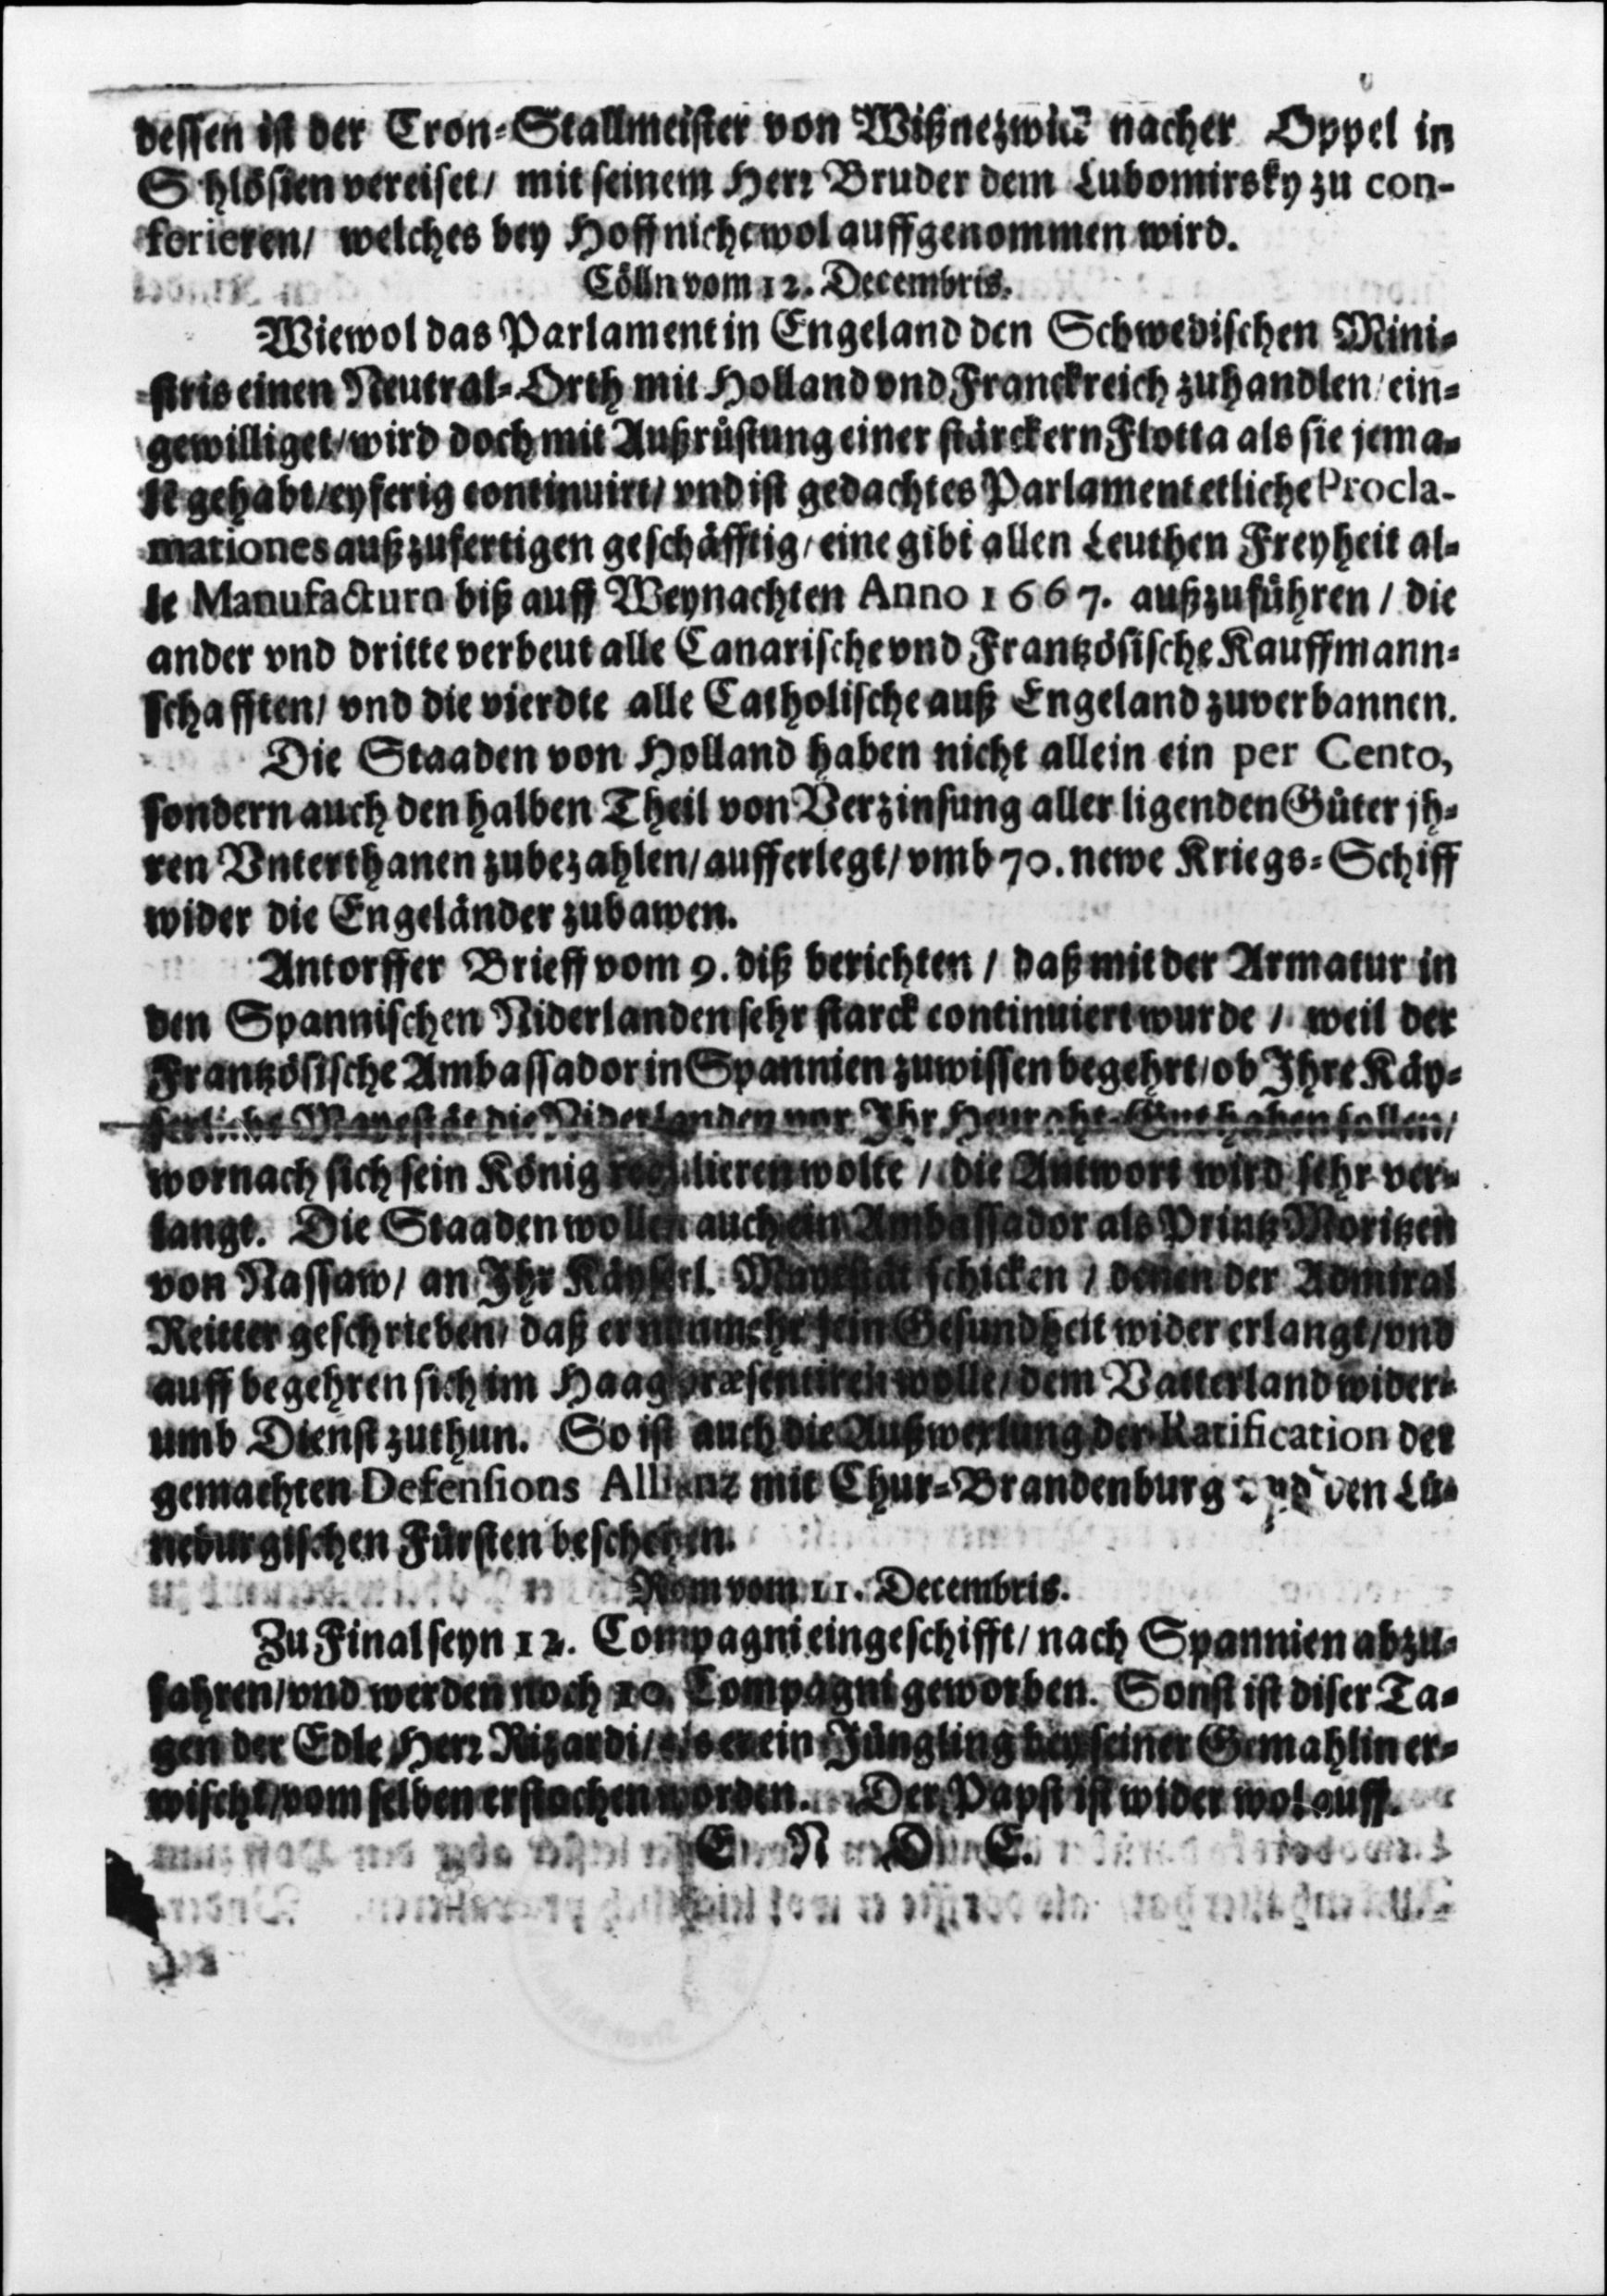 dessen ist der Cron-Stallmeister von Wißnezwitz nacher Oppel in
Schlösien vereiset/ mit seinem Herr Bruder dem Lubomirsky zu con-
ferieren/ welches bey Hoff nicht wol auffgenommen wird.
Cölln vom 12. Decembris.
Wiewol das Parlament in Engeland den Schwedischen Mini-
stris einen Neutral-Orth mit Holland vnd Franckreich zuhandlen/ ein-
gewilliget/ wird doch mit Außrüstung einer stärckern Flotta als sie jema-
ln gehabt/ eyferig continuirt/ vnd ist gedachtes Parlament etliche Procla-
mationes außzufertigen geschäfftig/ eine gibt allen Leuthen Freyheit al-
le Manufacturn biß auff Weynachten Anno 1667. außzuführen / die
ander vnd dritte verbeut alle Canarische vnd Frantzösische Kauffmann-
schafften/ vnd die vierdte alle Catholische auß Engeland zuverbannen.
Die Staaden von Holland haben nicht allein ein per Cento,
sondern auch den halben Theil von Verzinsung aller ligenden Güter jh-
ren Vnterthanen zubezahlen/ aufferlegt/ vmb 70. newe Kriegs-Schiff
wider die Engeländer zubawen.
Antorffer Brieff vom 9. diß berichten / daß mit der Armatur in
den Spannischen Niderlanden sehr starck continuiert wurde / weil der
Frantzösische Ambassador in Spannien zuwissen begehrt/ ob Ihre Käy-
serliche Mayestät die Niderlanden vor Ihr Heuraht-Gut haben sollen/
wornach sich sein König regulieren wolte / die Antwort wird sehr ver-
langt. Die Staaden wollen auch ein Ambassador als Printz Moritzen
von Nassaw/ an Ihr Käyserl. Mayestät schicken / denen der Admiral
Reitter geschrieben/ daß er nunmehr sein Gesundheit wider erlangt/ vnd
auff begehren sich im Haag præsentiren wolle/ dem Vatterland wider-
umb Dienst zuthun. So ist auch die Außwexlung der Ratification der
gemachten Defensions Allianz mit Chur-Brandenburg vnd den Lü-
neburgischen Fürsten beschehen.
Rom vom 11. Decembris.
Zu Final seyn 12. Compagni eingeschifft/ nach Spannien abzu-
fahren/ vnd werden noch 10. Compagni geworben. Sonst ist diser Ta-
gen der Edle Herr Rizardi/ als er ein Jüngling bey seiner Gemahlin er-
wischt/ vom selben erstochen worden. Der Papst ist wider wol auff.
E N D E.